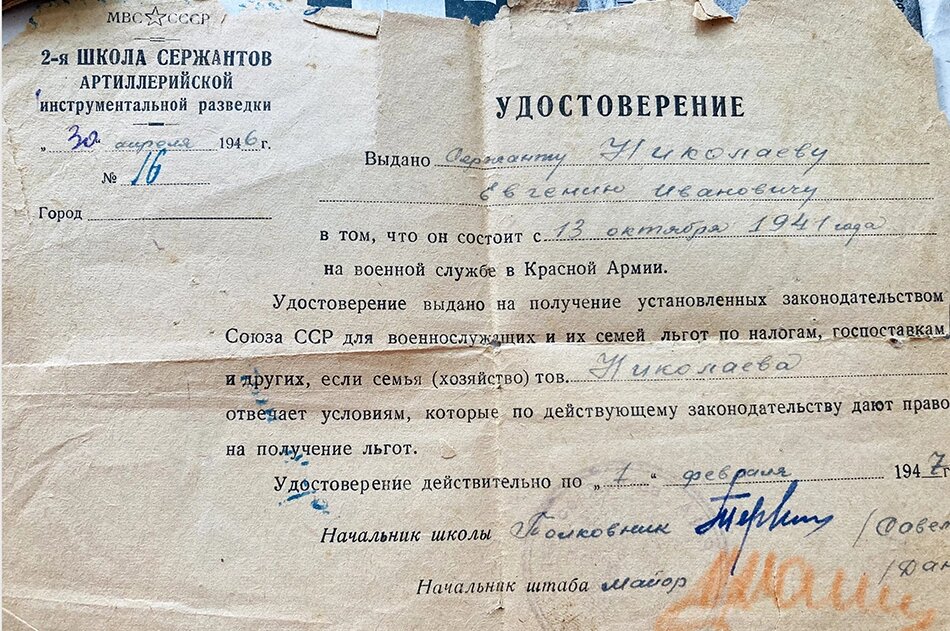 МВС СССР
2-я ШКОЛА СЕРЖАНТОВ
АРТИЛЛЕРИЙСКОЙ
инструментальной разведки
„30" апреля 1946 г.
№ 16
Город
УДОСТОВЕРЕНИЕ
Выдано Сержанту Николаеву
Евгению Ивановичу
в том, что он состоит с 13 октября 1941 года
на военной службе в Красной Армии.
Удостоверение выдано на получение установленных законодательством
Союза ССР для военнослужащих и их семей льгот по налогам, госпоставкам
и других, если семья (хозяйство) тов. Николаева
отвечает условиям, которые по действующему законодательству дают право
на получение льгот.
Удостоверение действительно по „1" февраля 1947 г
Начальник школы Полковник /Савел
Начальник штаба майор /Дан